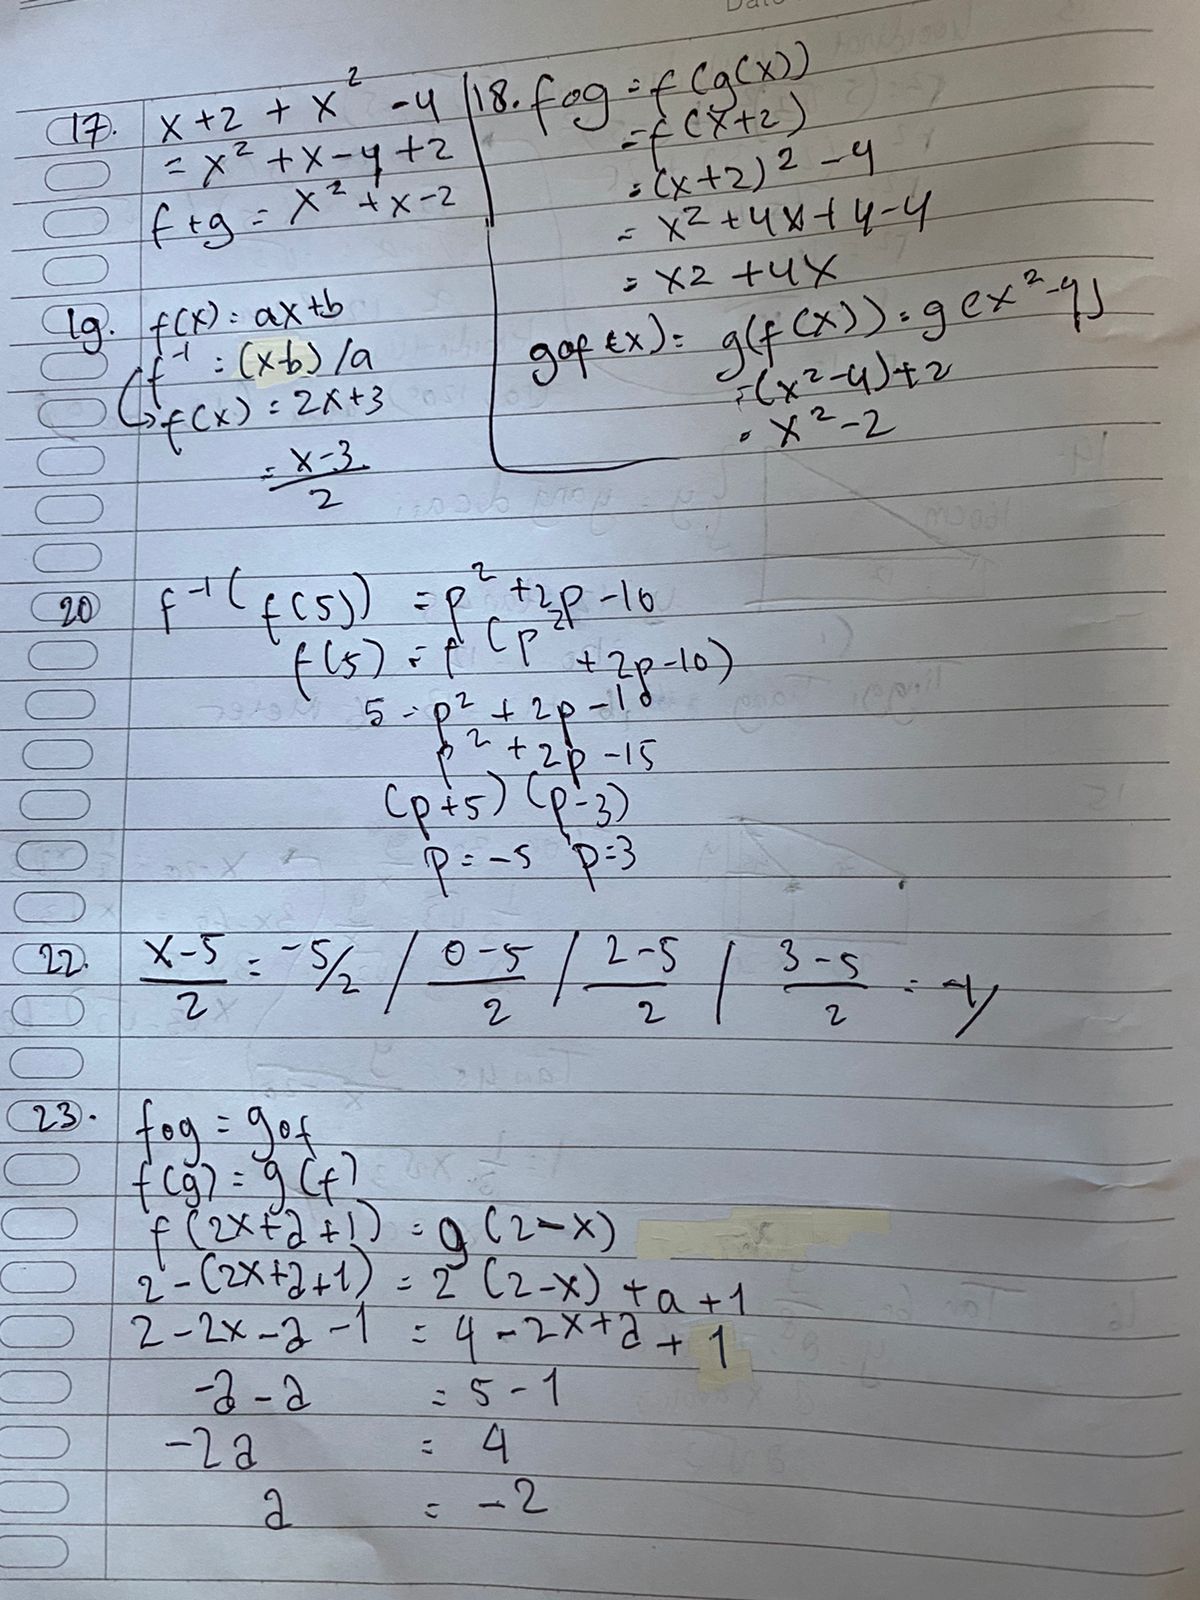 Date
17. x+2 + x² -4
= x² +x-4+2
f+g = x² +x-2
18. fog = f(g(x))
= f(x+2)
= (x+2)² -4
= x² +4x+4-4
= x2 +4x
gof(x) = g(f(x)) = g(x²-4)
= (x²-4)+2
= x²-2
19. f(x) = ax+b
f⁻¹ = (x-b) /a
↳ f(x) = 2x+3
= x-3/2
20 f⁻¹(f(5)) = p² +2p -10
f(5) = f(p² +2p-10)
5 = p² + 2p -10
p² +2p -15
(p+5) (p-3)
p = -5 p=3
22. x-5/2 = -5/2 / 0-5/2 / 2-5/2 / 3-5/2 = -1/
23. fog = gof
f(g) = g(f)
f(2x+a+1) = g(2-x)
2-(2x+a+1) = 2(2-x) +a+1
2-2x-a-1 = 4-2x+a+1
-a-a = 5-1
-2a = 4
a = -2